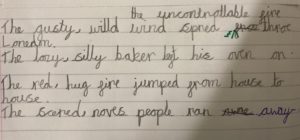 the uncontrollable fire
The gusty wind spred throu
London.
The lazy silly baker left his oven on.
The red, hug fire jumped from house to
house.
The scared people ran away